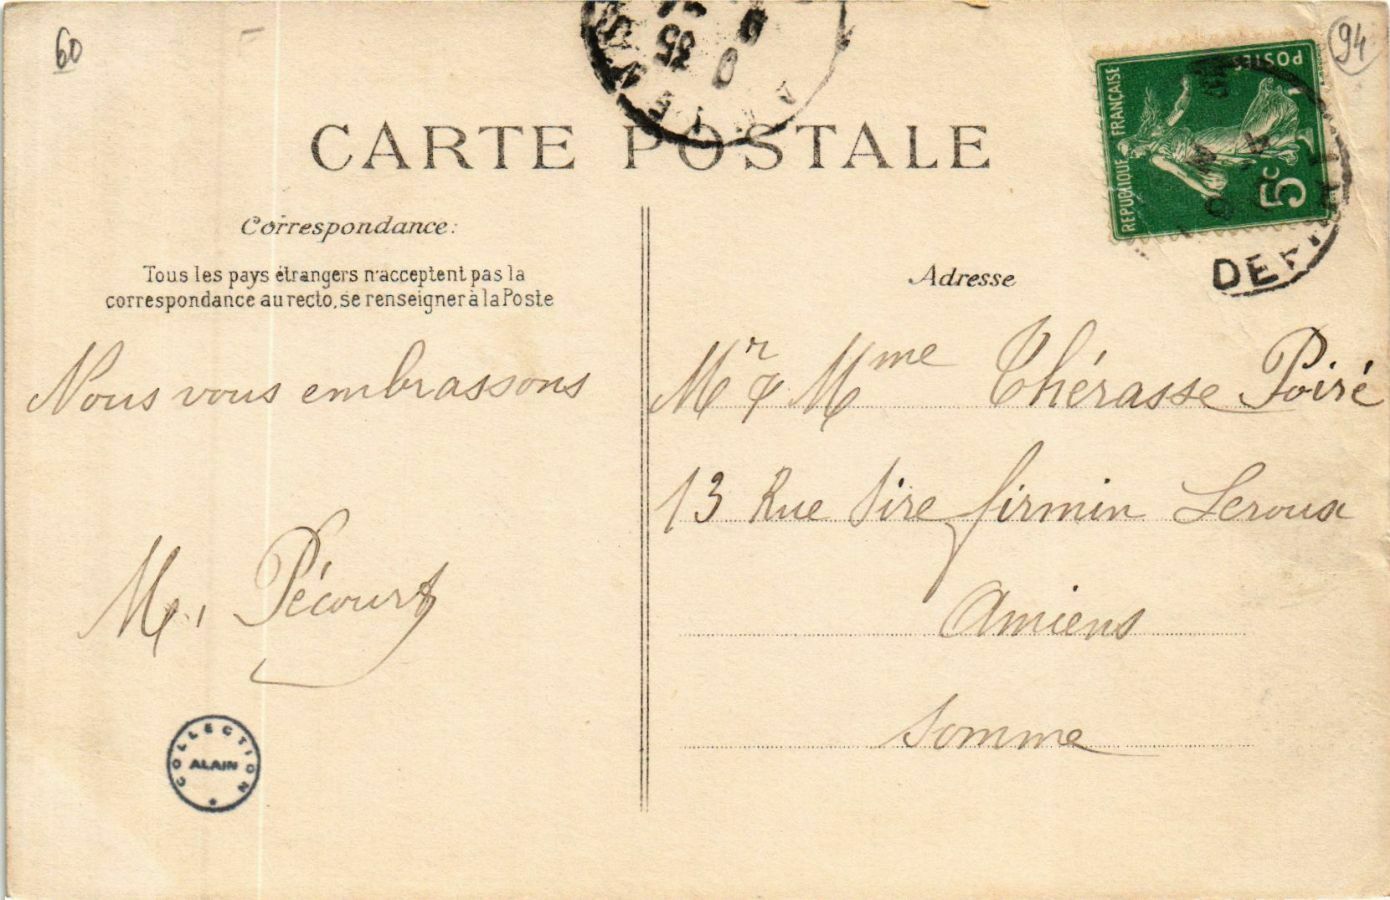 60
94
35
CARTE POSTALE
REPUBLIQUE FRANÇAISE
POSTES
5c
DEP
Correspondance:
Tous les pays étrangers n'acceptent pas la
correspondance au recto, se renseigner à la Poste
Nous vous embrassons
Pécourt
COLLECTION
ALAIN
Adresse
Mr & Mme Thérasse Poiré
13 Rue Sire firmin Leroux
Amiens
Somme